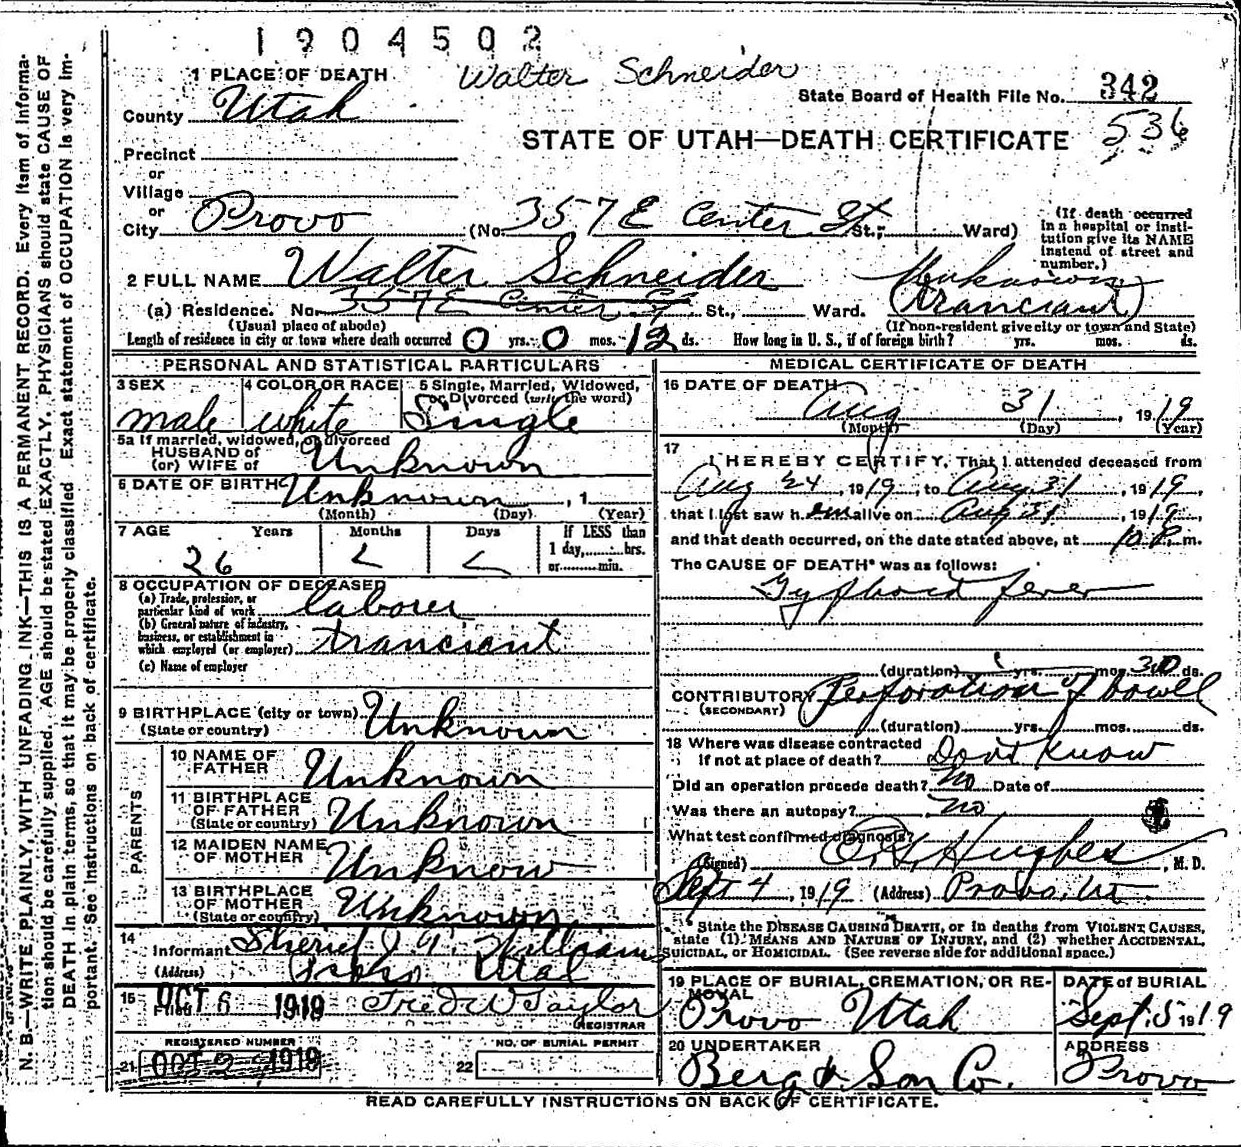 1904502
Walter Schneider
1 PLACE OF DEATH
State Board of Health File No. 342
County Utah
536
STATE OF UTAH—DEATH CERTIFICATE
Precinct
or
Village
or
City Provo (No. 357 E Center St. St.; Ward)
(If death occurred in a hospital or institution give its NAME instead of street and number.)
2 FULL NAME Walter Schneider
Unknown
(a) Residence. No. 357 E Center St St., Ward. (Trancient)
(Usual place of abode)
(If non-resident give city or town and State)
Length of residence in city or town where death occurred 0 yrs. 0 mos. 12 ds. How long in U. S., if of foreign birth? yrs. mos. ds.
PERSONAL AND STATISTICAL PARTICULARS
3 SEX
male
4 COLOR OR RACE
white
5 Single, Married, Widowed,
or Divorced (write the word)
Single
5a If married, widowed, or divorced
HUSBAND of
(or) WIFE of Unknown
6 DATE OF BIRTH Unknown, 1
(Month) (Day) (Year)
7 AGE Years Months Days If LESS than
1 day, hrs.
or min.
26
8 OCCUPATION OF DECEASED
(a) Trade, profession, or
particular kind of work laborer
(b) General nature of industry,
business, or establishment in
which employed (or employer) trancient
(c) Name of employer
9 BIRTHPLACE (city or town) Unknown
(State or country)
PARENTS
10 NAME OF
FATHER Unknown
11 BIRTHPLACE
OF FATHER
(State or country) Unknown
12 MAIDEN NAME
OF MOTHER Unknow
13 BIRTHPLACE
OF MOTHER
(State or country) Unknown
14
Informant Sherief J. T. Williams
(Address) Utah
15 Filed OCT 6 1919 Fred W Taylor
REGISTRAR
REGISTERED NUMBER
21 OCT 2 1919
NO. OF BURIAL PERMIT
22
MEDICAL CERTIFICATE OF DEATH
16 DATE OF DEATH
Aug 31, 1919
(Month) (Day) (Year)
17
I HEREBY CERTIFY, That I attended deceased from
Aug 24, 1919, to Aug 31, 1919,
that I last saw h em alive on Aug 31, 1919,
and that death occurred, on the date stated above, at 10 P. m.
The CAUSE OF DEATH* was as follows:
Typhoid fever
(duration) yrs. mos. 30 ds.
CONTRIBUTORY Perforation of bowell
(SECONDARY)
(duration) yrs. mos. ds.
18 Where was disease contracted
If not at place of death? Dont know
Did an operation precede death? no Date of
Was there an autopsy? no
What test confirmed diagnosis?
(Signed) Hughes, M. D.
Sept 4, 1919 (Address) Provo, Ut
* State the DISEASE CAUSING DEATH, or in deaths from VIOLENT CAUSES,
state (1) MEANS AND NATURE OF INJURY, and (2) whether ACCIDENTAL,
SUICIDAL, or HOMICIDAL. (See reverse side for additional space.)
19 PLACE OF BURIAL, CREMATION, OR REMOVAL
Provo Utah
DATE of BURIAL
Sept. 5 1919
20 UNDERTAKER
Berg & Son Co.
ADDRESS
Provo
READ CAREFULLY INSTRUCTIONS ON BACK OF CERTIFICATE.
N. B.—WRITE PLAINLY, WITH UNFADING INK—THIS IS A PERMANENT RECORD. Every item of informa-
tion should be carefully supplied. AGE should be stated EXACTLY. PHYSICIANS should state CAUSE OF
DEATH in plain terms, so that it may be properly classified. Exact statement of OCCUPATION is very im-
portant. See instructions on back of certificate.